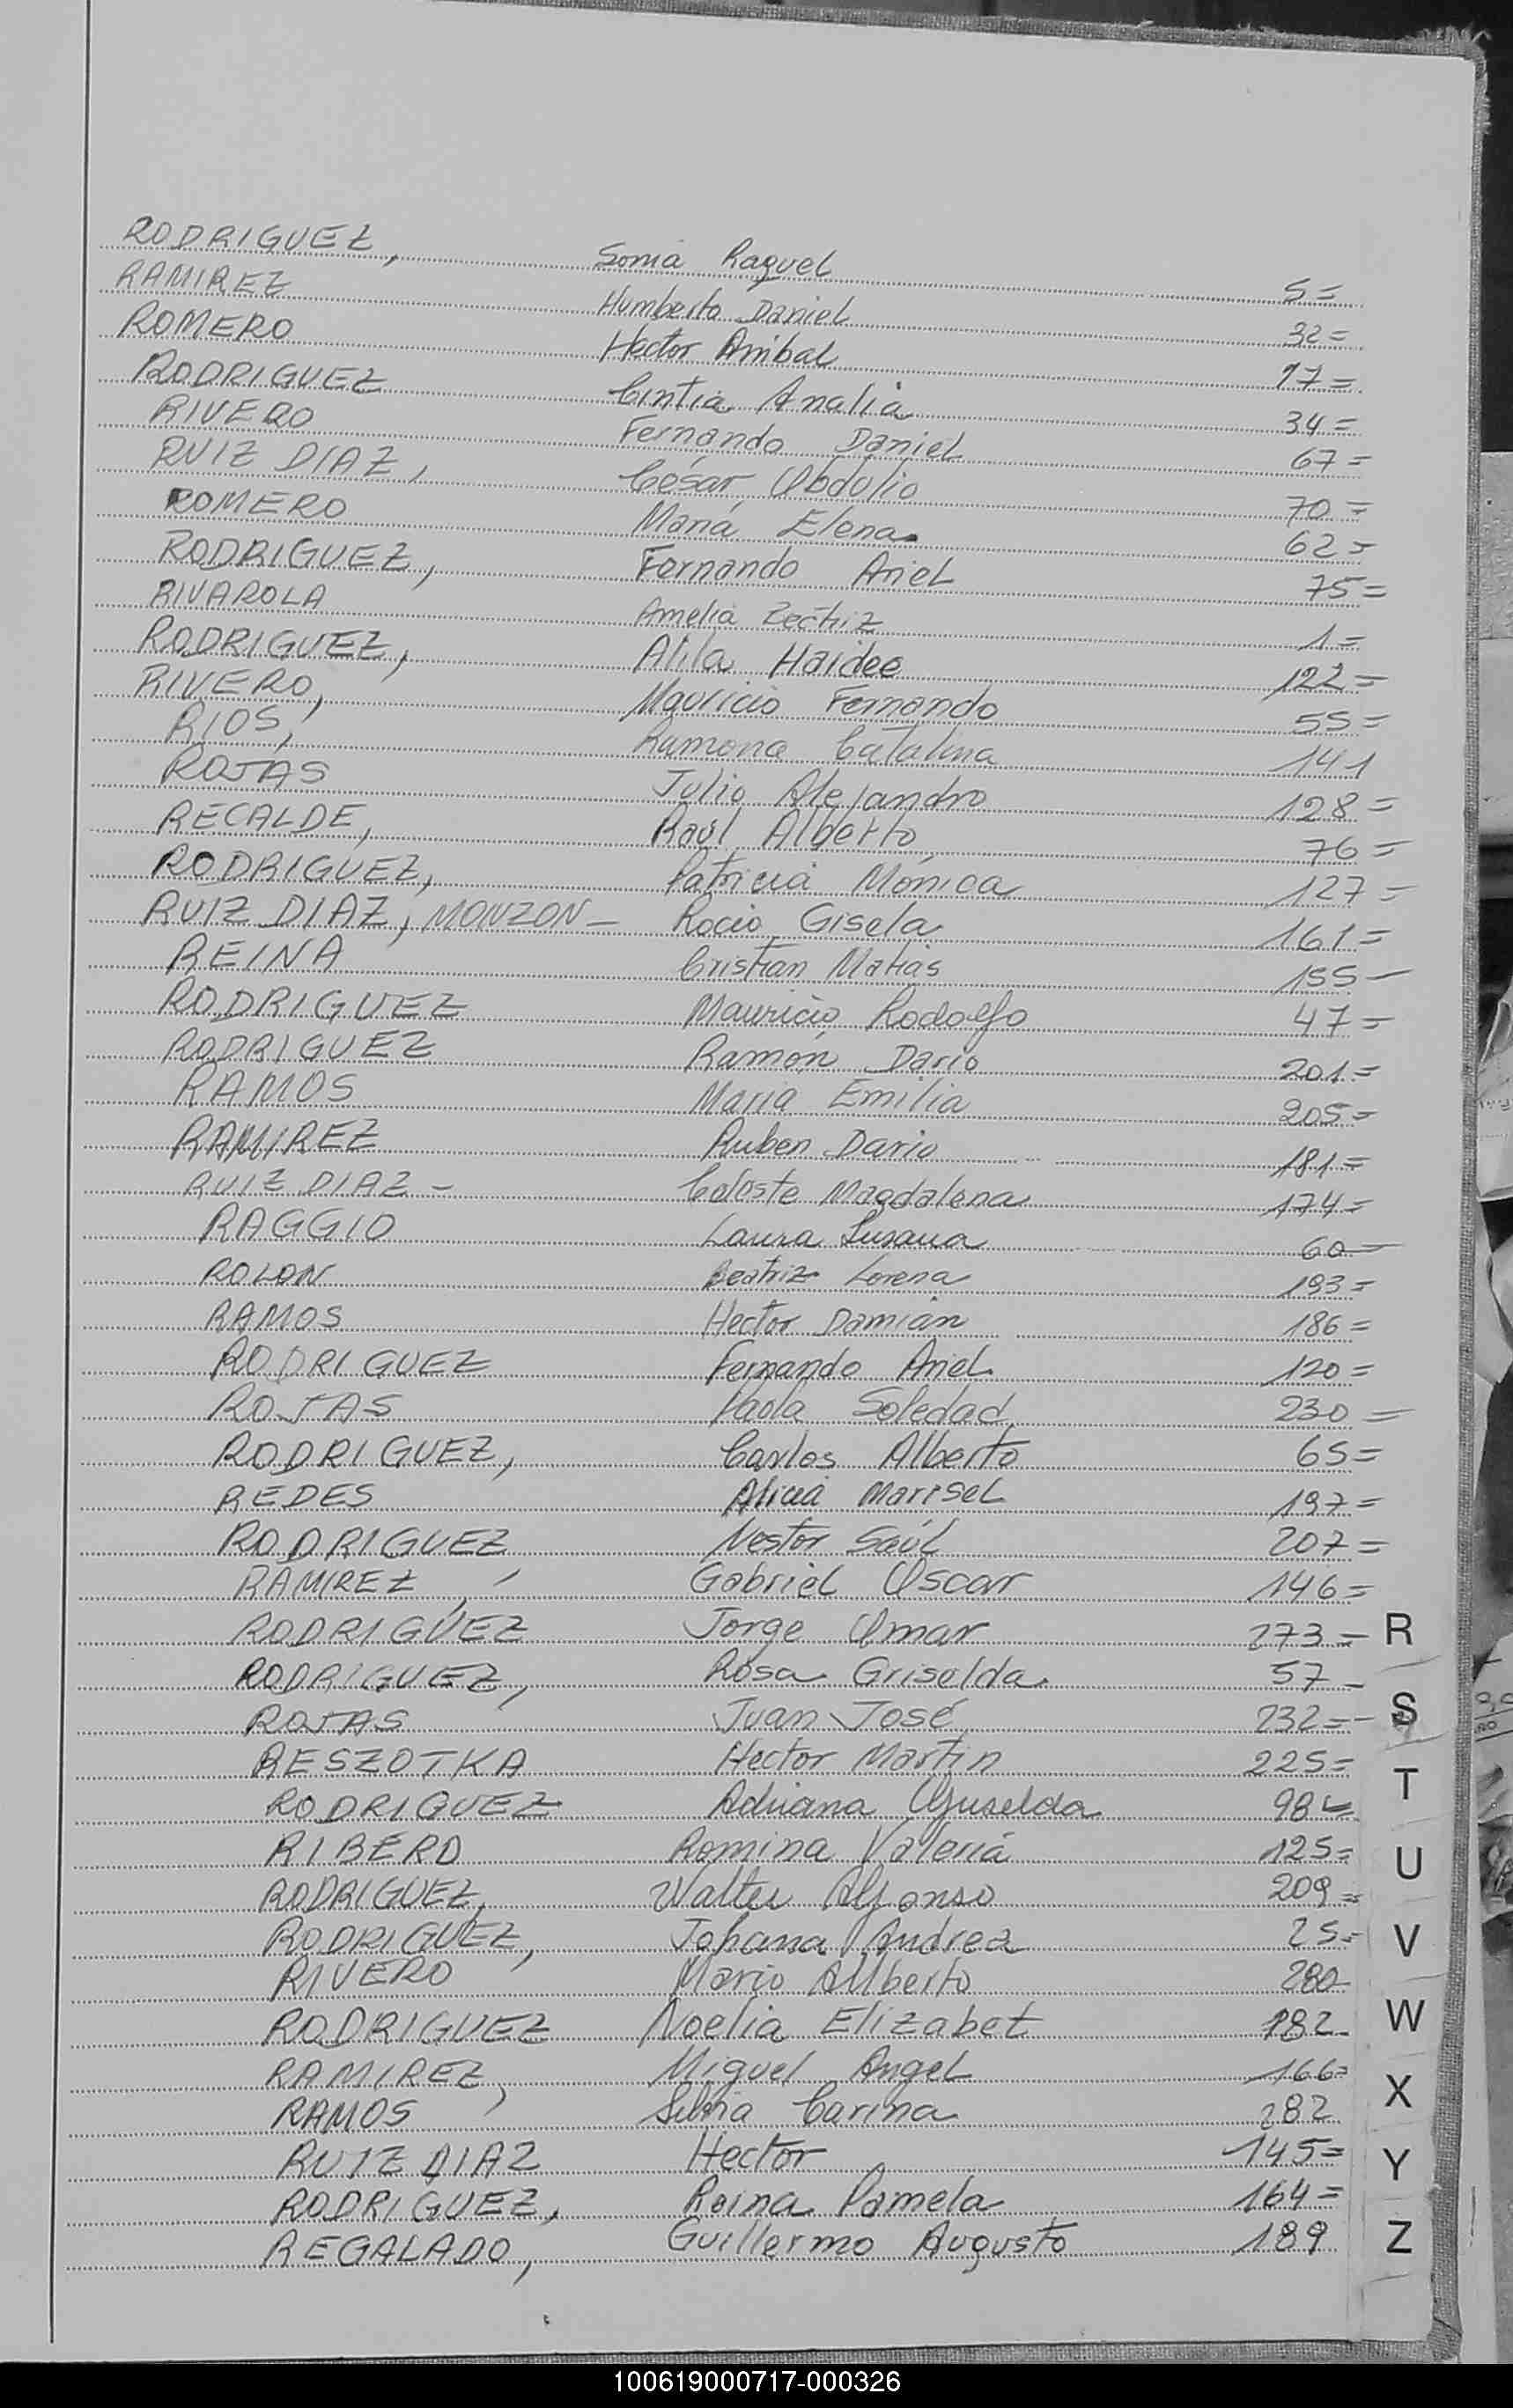 RODRIGUEZ, Sonia Raquel 5=
RAMIREZ Humberto Daniel 32=
ROMERO Hector Anibal 17=
RODRIGUEZ Cintia Analia 34=
RIVERO Fernando Daniel 67=
RUIZ DIAZ, César Obdulio 70=
ROMERO María Elena 62=
RODRIGUEZ, Fernando Ariel 75=
RIVAROLA Amelia Beatriz 1=
RODRIGUEZ, Haidee 122=
RIVERO, Mauricio Fernando 55=
RIOS, Ramona Catalina 141
ROJAS Julio Alejandro 128=
RECALDE, Raúl Alberto 76=
RODRIGUEZ, Patricia Mónica 127=
RUIZ DIAZ, MONZON - Rocio Gisela 161=
REINA Cristian Matias 155-
RODRIGUEZ Mauricio Rodolfo 47=
RODRIGUEZ Ramón Dario 201=
RAMOS Maria Emilia 205=
RAMIREZ Ruben Dario 181=
RUIZ DIAZ - Celeste Magdalena 174=
RAGGIO Laura Susana 60-
ROLON Beatriz Lorena 193=
RAMOS Hector Damián 186=
RODRIGUEZ Fernando Ariel 120=
ROJAS Paola Soledad 230=
RODRIGUEZ, Carlos Alberto 65=
REDES Alicia Marisel 197=
RODRIGUEZ Nestor Saúl 207=
RAMIREZ, Gabriel Oscar 146=
RODRIGUEZ Jorge Omar 273-
R
RODRIGUEZ, Rosa Griselda 57-
ROJAS Juan José 232=-
S
RESZOTKA Hector Martin 225=
T
RODRIGUEZ Adriana Griselda 98=
RIBERO Romina Valeria 125=
U
RODRIGUEZ, Walter Alfonso 209=
RODRIGUEZ, Johana Andrea 25=
V
RIVERO Mario Alberto 280-
RODRIGUEZ Noelia Elizabet 182-
W
RAMIREZ, Miguel Angel 166=
X
RAMOS Silvia Carina 282
RUIZ DIAZ Hector 145=
Y
RODRIGUEZ, Reina Pamela 164=
REGALADO, Guillermo Augusto 189
Z
100619000717-000326